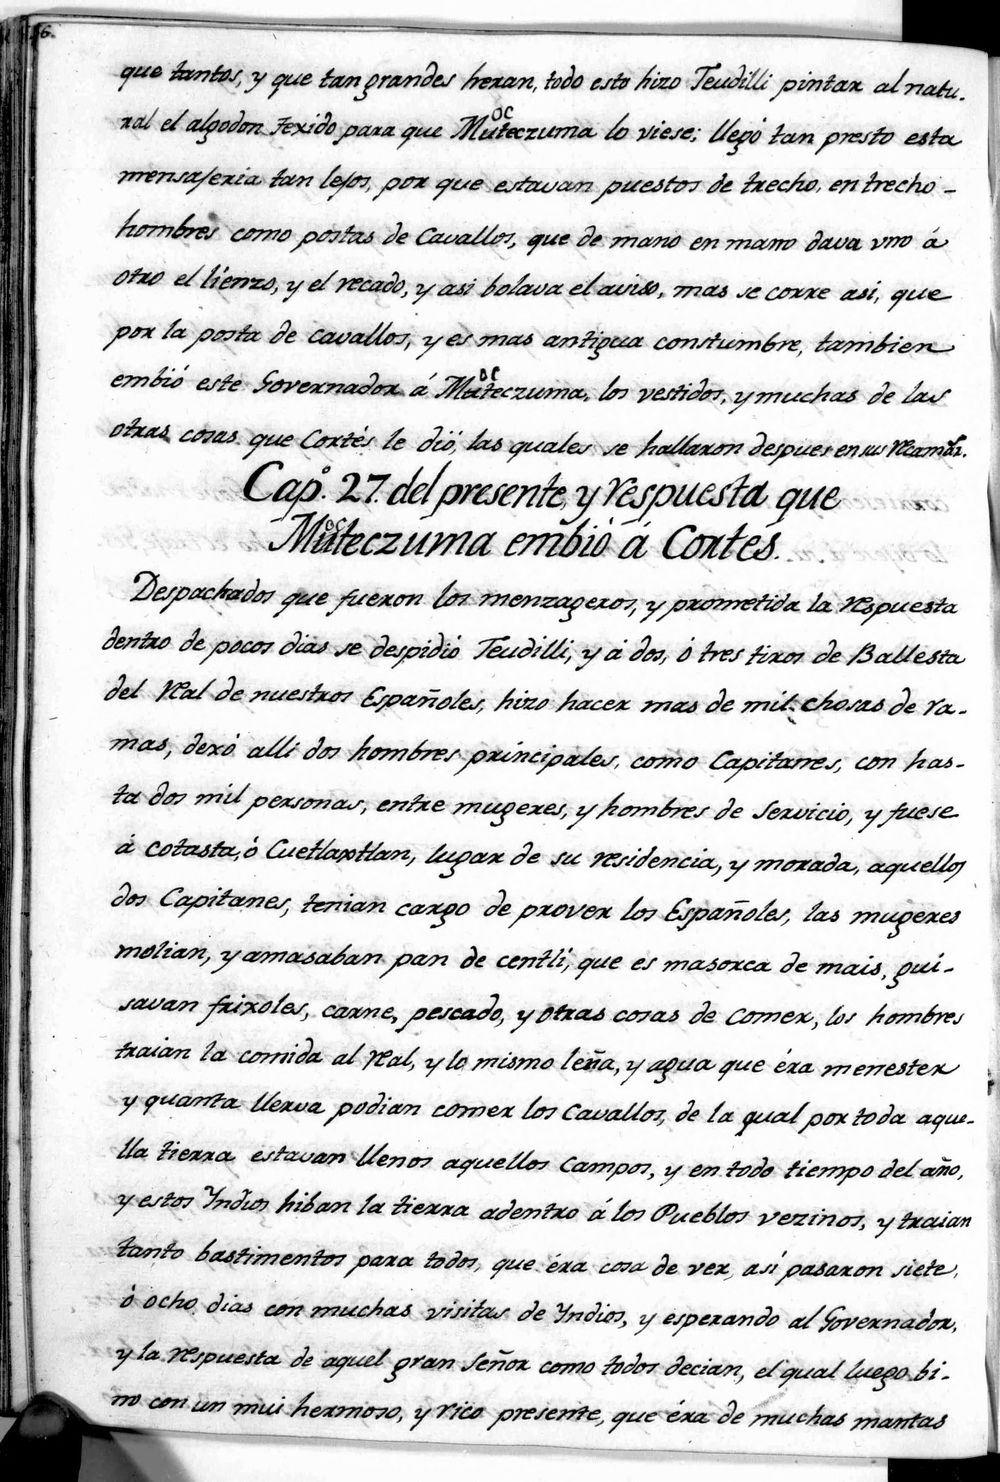 56.
que tantos, y que tan grandes heran, todo esto hizo Teudilli pintar al natu-
ral el algodon texido para que Muteczuma lo viese; llegó tan presto esta
mensajeria tan lejos, por que estavan puestos de trecho, en trecho-
hombres como postas de Cavallos, que de mano en mano dava vno á
otro el lienzo, y el recado, y asi bolava el aviso, mas se corre asi, que
por la posta de cavallos, y es mas antigua constumbre, tambien
embió este Governador á Muteczuma, los vestidos, y muchas de las
otras cosas que Cortés le dió, las quales se hallaron despues en su
Capo. 27. del presente, y respuesta que
Muteczuma embió á Cortes.
Despachados que fueron los menzageros, y prometida la respuesta
dentro de pocos dias se despidió Teudilli, y á dos, ó tres tiros de Ballesta
del real de nuestros Españoles, hizo hacer mas de mil chosas de ra-
mas, dexó alli dos hombres principales, como Capitanes, con has-
ta dos mil personas, entre mugeres, y hombres de servicio, y fuese
á cotasta, ó Cuetlaxtlan, lugar de su residencia, y morada, aquellos
dos Capitanes, tenian cargo de prover los Españoles, las mugeres
molian, y amasaban pan de centli, que es masorca de mais, gui-
savan frixoles, carne, pescado, y otras cosas de comer, los hombres
traian la comida al real, y lo mismo leña, y agua que éra menester
y quanta llerva podian comer los cavallos, de la qual por toda aque-
lla tierra estavan llenos aquellos campos, y en todo tiempo del año,
y estos Yndios hiban la tierra adentro á los Pueblos vezinos, y traian
tanto bastimentos para todos, que éra cosa de ver, asi pasaron siete,
ó ocho dias con muchas visitas de Yndios, y esperando al Governador,
y la respuesta de aquel gran señor como todos decian, el qual luego bi-
no con un mui hermoso, y rico presente, que éra de muchas mantas